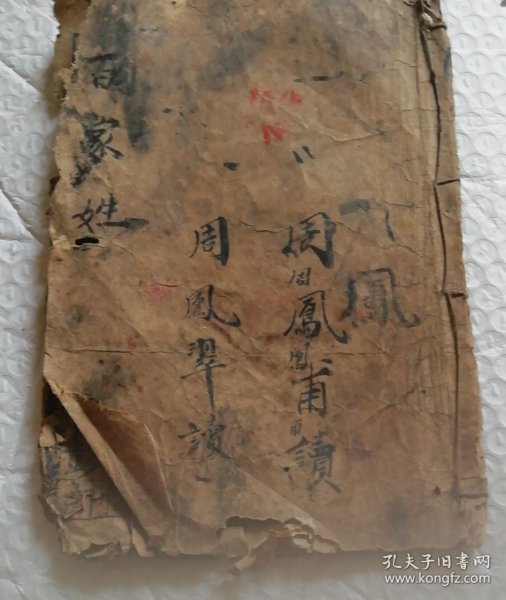 鳳
周鳳甫讀
周鳳
周鳳翠讀
百家姓
孔夫子旧书网
www.kongfz.com